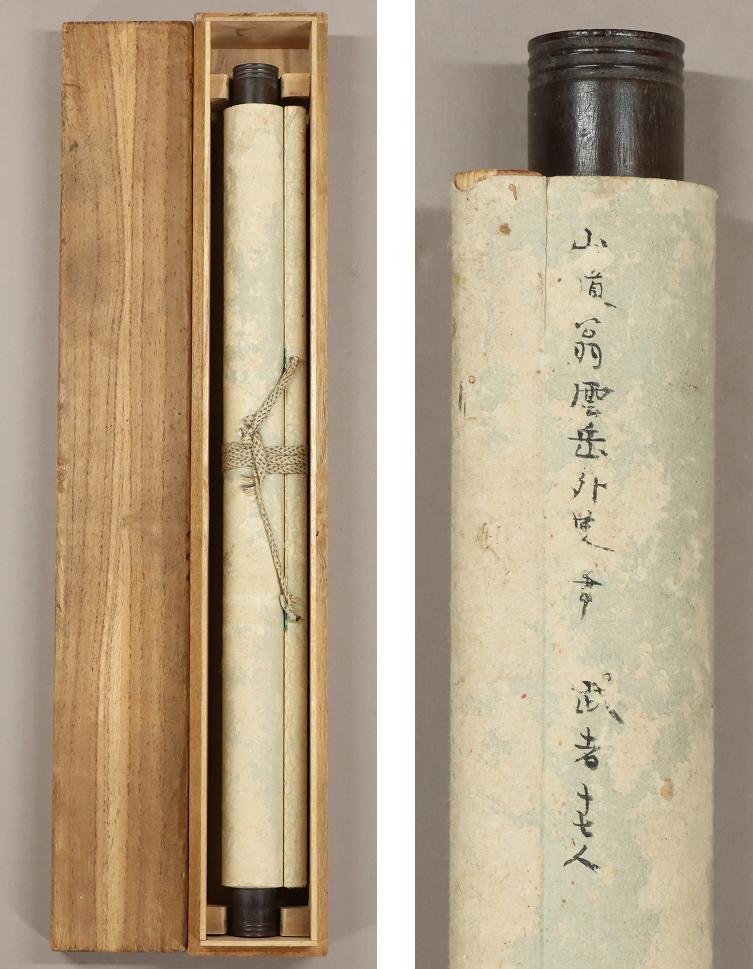 山道翁雲岳外史筆 武者十七人